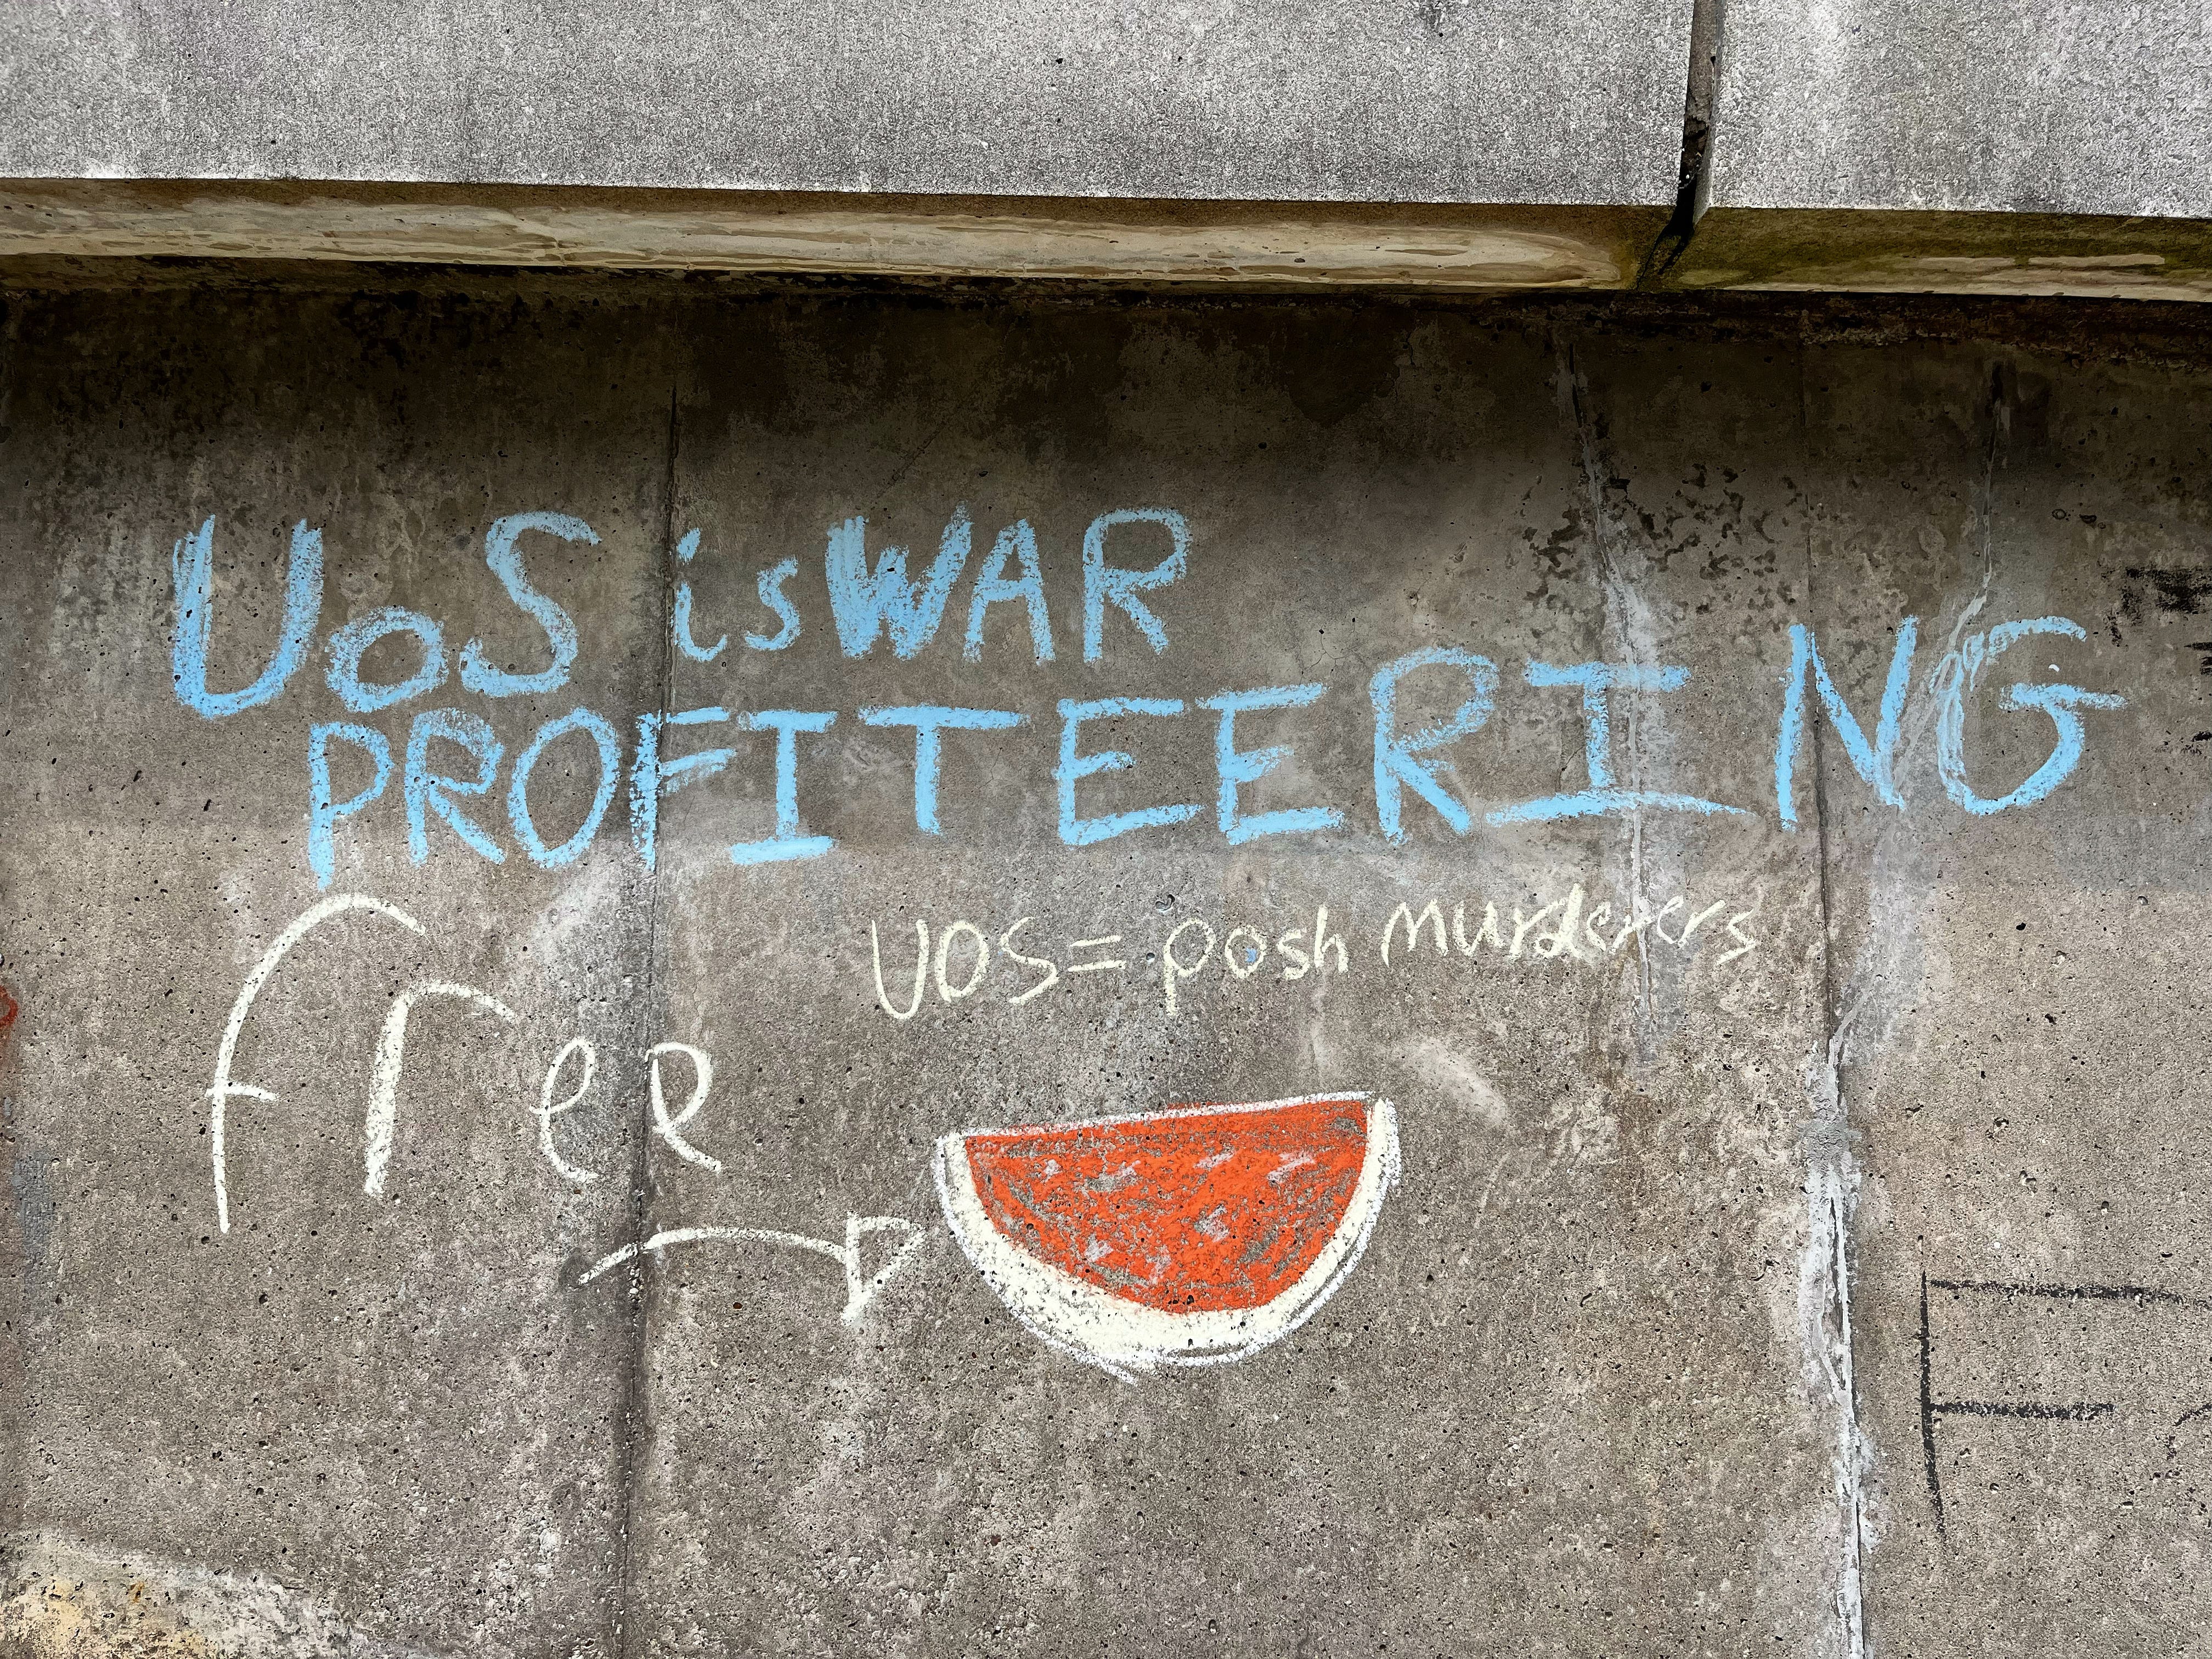 UoS is WAR
PROFITEERING
UOS = posh murderers
free